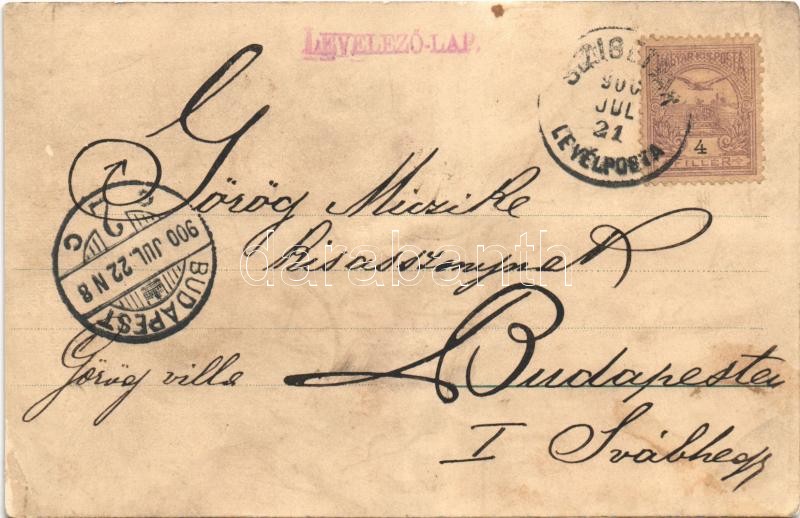 LEVELEZŐ-LAP.
900
JUL
21
LEVÉLPOSTA
MAGYAR KIR. POSTA
4
FILLÉR
Görög Muzike
kisasszonynak
Budapesten
Görög villa
I Svábhegy
BUDAPEST
900 JUL. 22 N 8
C
darabanth